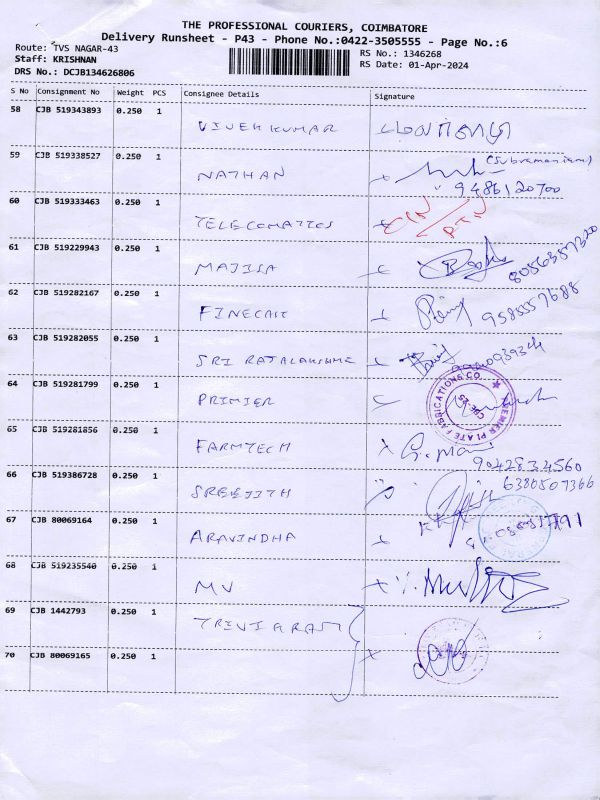 THE PROFESSIONAL COURIERS, COIMBATORE
Delivery Runsheet - P43 - Phone No.:0422-3505555 - Page No.:6
Route: TVS NAGAR-43
RS No.: 1346268
Staff: KRISHNAN
RS Date: 01-Apr-2024
DRS No.: DCJB134626806
S No Consignment No Weight PCS Consignee Details Signature
58 CJB 519343893 0.250 1
VIVEK KUMAR
59 CJB 519338527 0.250 1 (Subramaniam)
NATHAN 9486120700
60 CJB 519333463 0.250 1
61 CJB 519229943 0.250 1
MAJISA 8056357320
62 CJB 519282167 0.250 1
FINECAST 9585557688
63 CJB 519282055 0.250 1
SRI RAJALAKSHME
64 CJB 519281799 0.250 1
PRIMIER
PREMIER PLATE FABRICATIONS CO.
CBE-25
65 CJB 519281856 0.250 1
FARMTECH G. Mani
9042834560
66 CJB 519386728 0.250 1 6380507366
SREEJITH
67 CJB 80069164 0.250 1
ARAVINDHA
68 CJB 519235540 0.250 1
MV
69 CJB 1442793 0.250 1
70 CJB 80069165 0.250 1